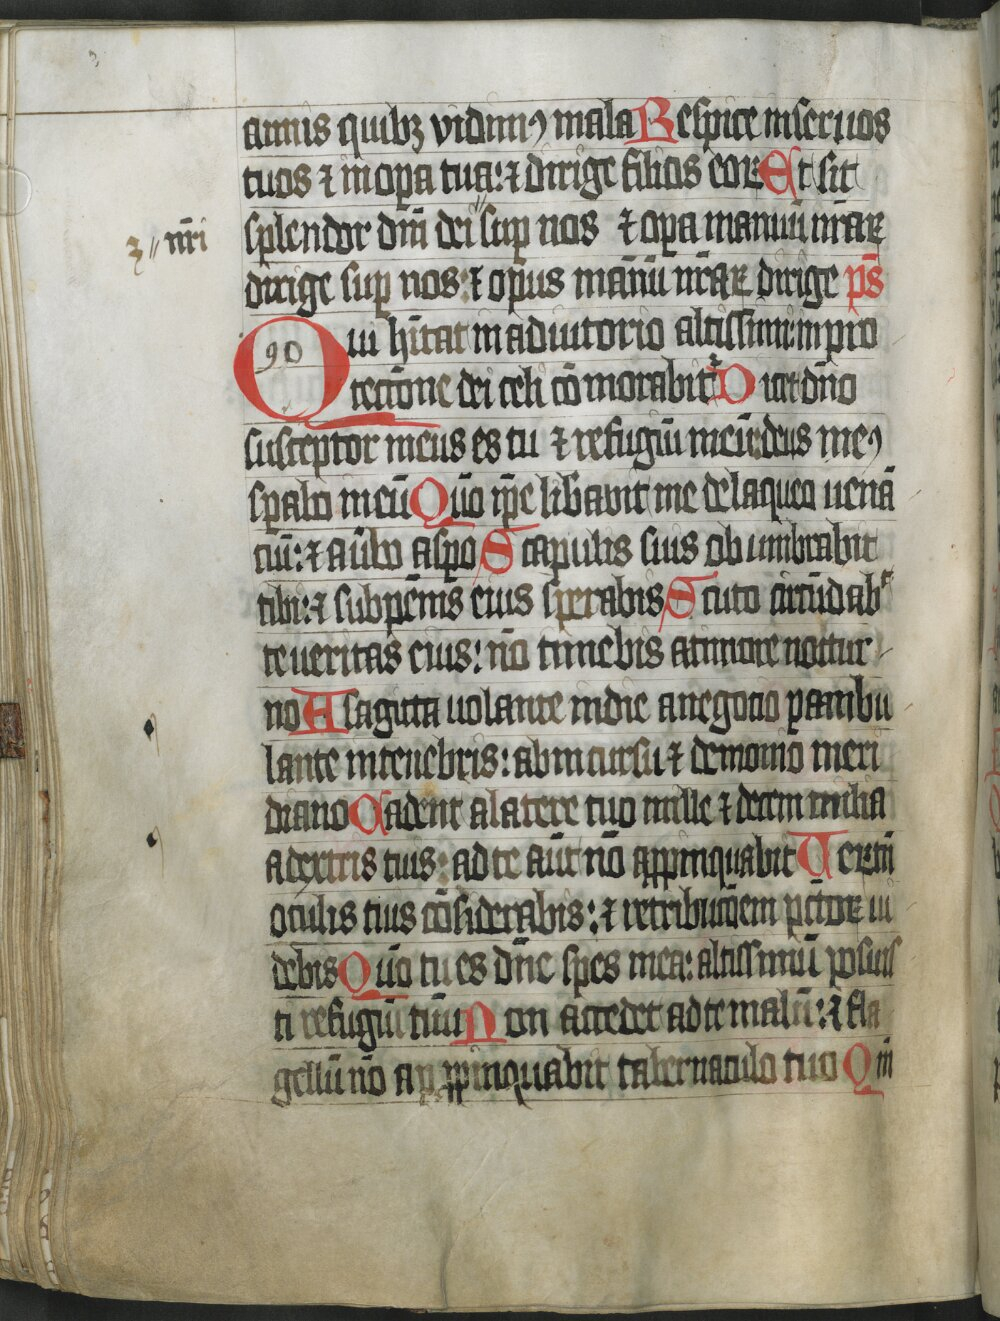 annis quibꝫ vidimꝰ mala Respice in seruos
tuos ⁊ in opa tua: ⁊ dirige filios eoꝝ Et sit
splendor dn̄i dei sup nos ⁊ opa manuū nr̄aꝝ
ʒ // nr̄i
dirige sup nos: ⁊ opus manuū nr̄aꝝ dirige ps̄
90
Qui hītat in adiutorio altissimi: in pro
tectione dei celi cō morabitᷣ Dicet dn̄o
susceptor meus es tu ⁊ refugiū meū: deus meꝰ
sꝑabo in eū Qm̄o ip̄e libauit me de laqueo uenā
tiū: ⁊ a ūbo aspo Scapulis suis ob umbrabit
tibi: ⁊ sub pēnis eius sperabis Scuto circūdabᷣ
te ueritas eius: nō timebis a timore noctur
no A sagitta uolante in die a negocio ꝑambu
lante in tenebris: ab incursu ⁊ demonio meri
diano Cadent a latere tuo mille ⁊ decem milia
a dextris tuis: ad te aūt nō appinquabit Uerūtn̄
oculis tuis cōsiderabis: ⁊ retribucōem pcc̄toꝝ ui
debis Qūo tu es dn̄e spes mea: altissimū posuis
ti refugiū tuū Non accedet ad te malū: ⁊ fla
gellū nō appinquabit tabernaculo tuo Qm̄